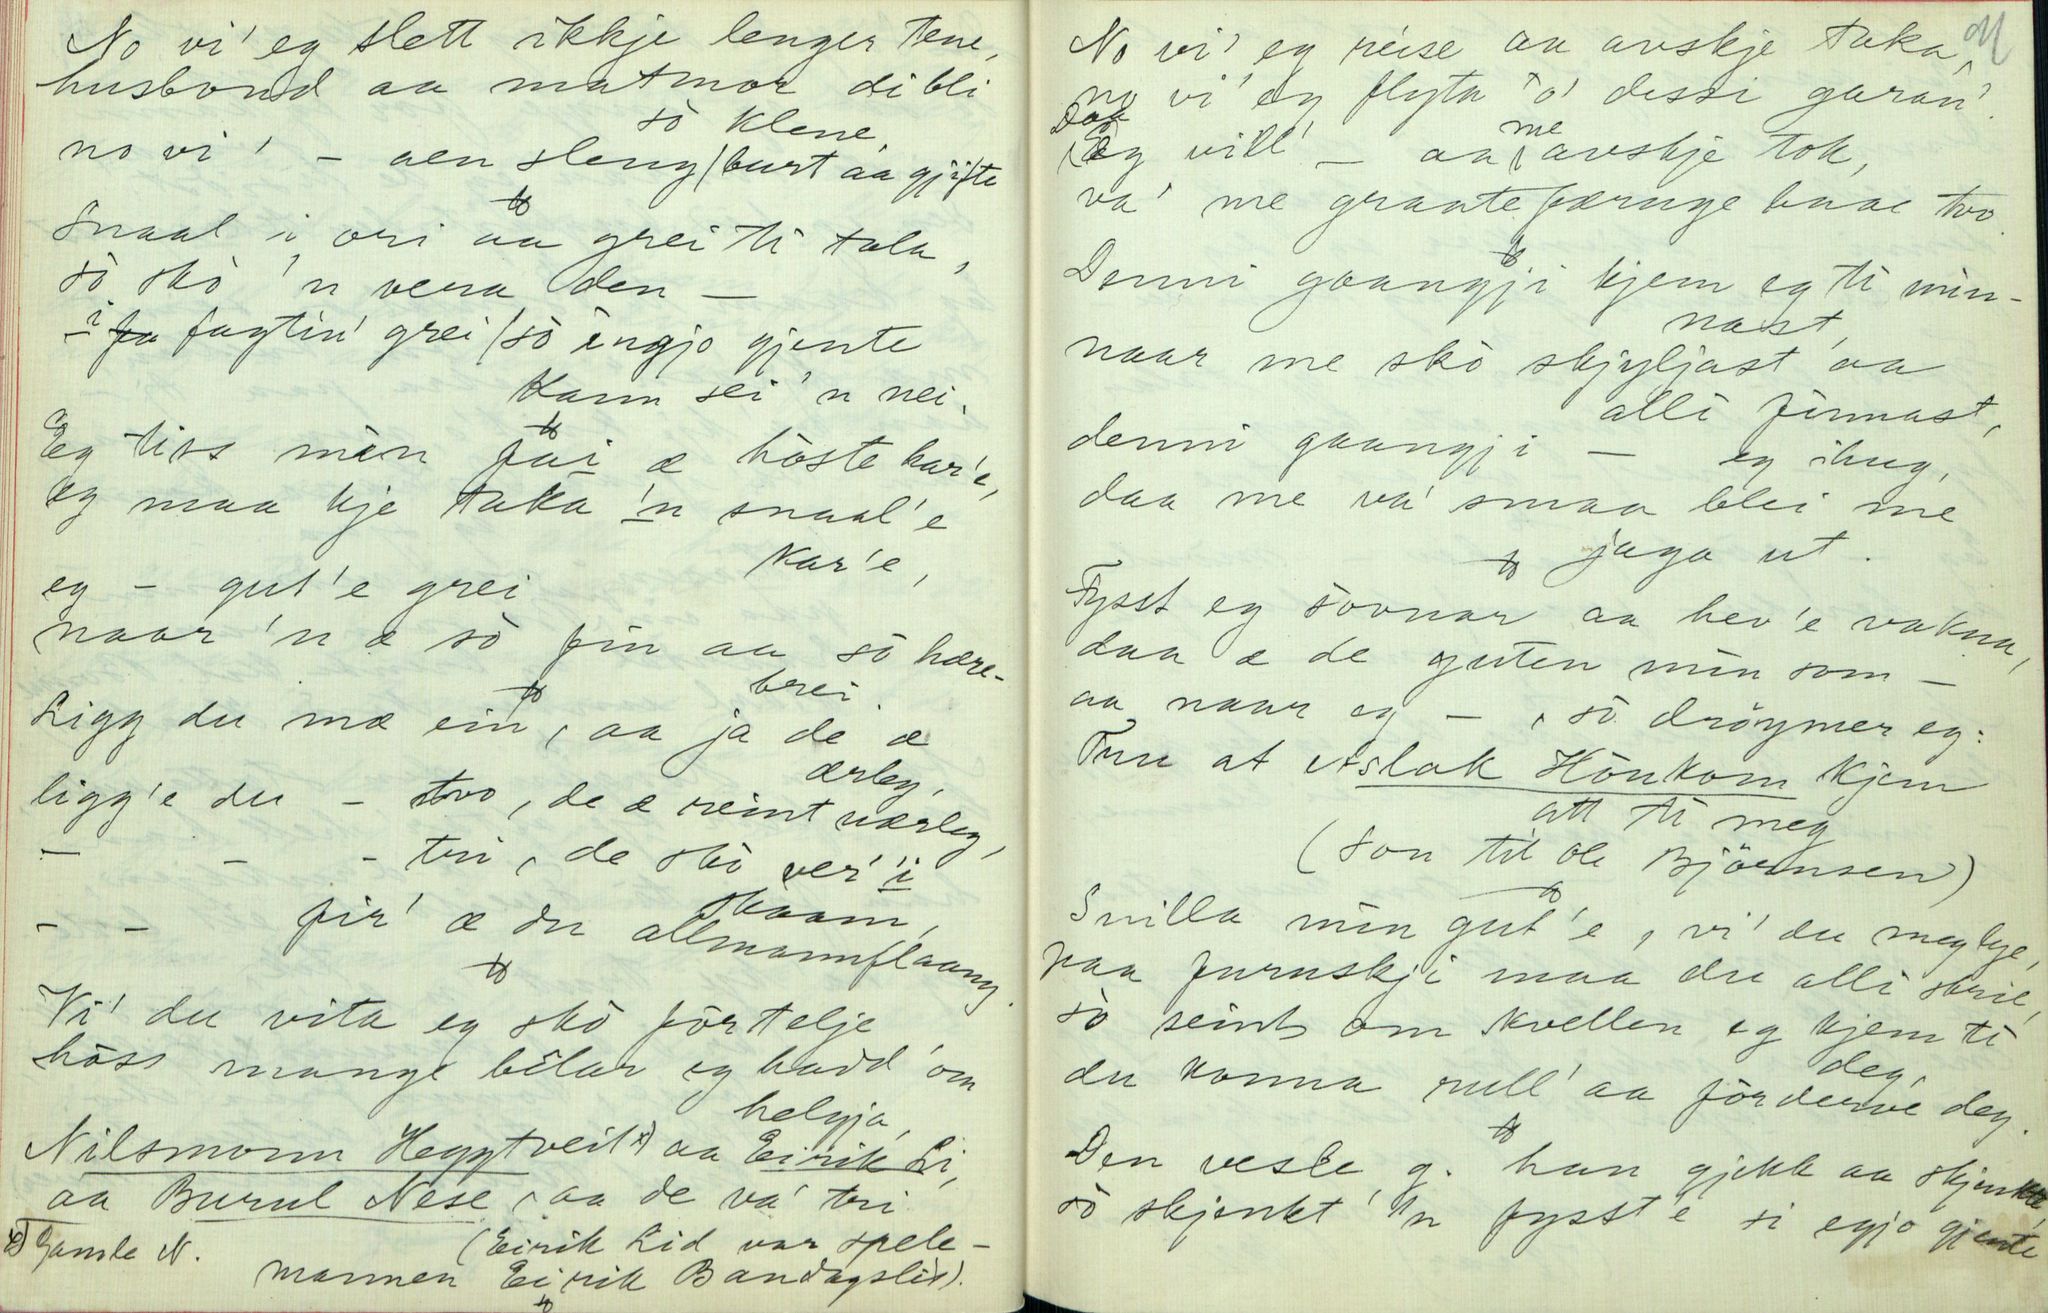 No vi' eg slett ikkje lenger tene,
husbond aa matmor di bli
so klene,
no vi' – aen sleng / burt aa gjifte
Snaal i ori aa grei ti tala,
so sko 'n vera den –
i fagtin' grei / so ingjo gjente
kann sei 'n nei.
Eg tiss min fai æ höste kar'e,
eg maa kje taka 'n snaal'e
kar'e,
eg – gut'e grei
naar 'n æ so fin aa so hære-
brei.
Ligg du mæ ein, aa ja de æ
ærleg,
ligg'e du – tvo, de æ reint værleg,
– – – tri, de sko ver' i
skaam,
– – fir' æ du allmannflaang.
Vi' du vita eg sko förtelje
hoss mange bilar eg hadd' om
helgja,
Nilsmonn Heggtveit x) aa Eirik Li,
aa Burul Nese, aa de va' tri.
x) Gamle N. (Eirik Lid var spele-
mannen Eirik Bandagslid).
No vi' eg reise aa avskje taka,
no vi' eg flyta o' dessi garan'.
Daa
Eg vill' – aa me avskje tok,
va' me graatefærnge baae tvo.
Denni gaangji kjem eg ti min-
nast,
naar me sko skjyljast aa
alli finnast,
denni gaangji – eg ihug,
daa me va' smaa blei me
jaga ut.
Fysst eg sovnar aa hev'e vakna,
daa æ de guten min som –
aa naar eg –, so dröymer eg:
Tru at Aslak Hönkom kjem
att ti meg
(Son til Ole Björnsen)
Snilla min gut'e, vi' du meg lye,
paa furuskji maa du alli skrie,
so seint om kvellen eg kjem ti
deg,
du konna rull' aa förderve deg.
Den vesle g. han gjekk aa skjenkte,
so skjenkt' 'n fysst'e si egjo gjente